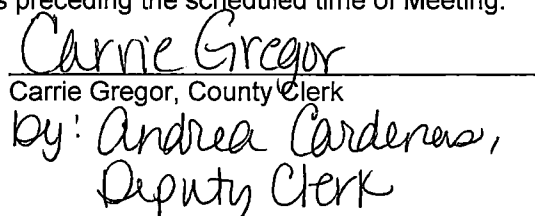 s preceding the scheduled time of Meeting.
Carrie Gregor
Carrie Gregor, County Clerk
by: Andrea Cardenas,
Deputy Clerk